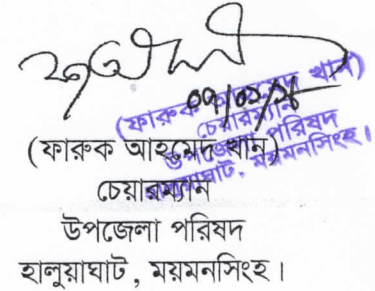 (ফারুক আহমেদ খান)
চেয়ারম্যান
উপজেলা পরিষদ
হালুয়াঘাট, ময়মনসিংহ।
(ফারুক আহমেদ খান)
চেয়ারম্যান
উপজেলা পরিষদ
হালুয়াঘাট, ময়মনসিংহ।